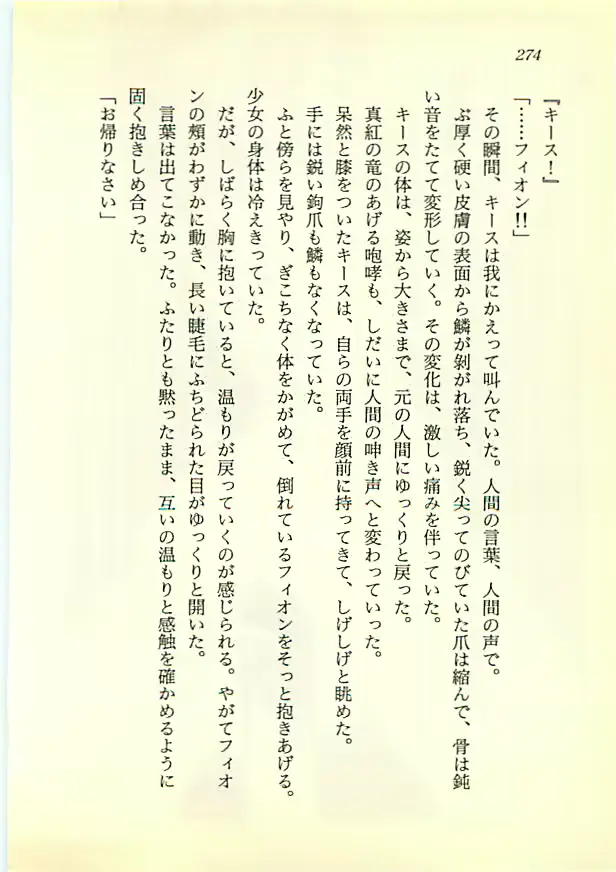 274
『キース！』
「……フィオン!!」
その瞬間、キースは我にかえって叫んでいた。人間の言葉、人間の声で。
ぶ厚く硬い皮膚の表面から鱗が剝がれ落ち、鋭く尖ってのびていた爪は縮んで、骨は鈍
い音をたてて変形していく。その変化は、激しい痛みを伴っていた。
キースの体は、姿から大きさまで、元の人間にゆっくりと戻った。
真紅の竜のあげる咆哮も、しだいに人間の呻き声へと変わっていった。
呆然と膝をついたキースは、自らの両手を顔前に持ってきて、しげしげと眺めた。
手には鋭い鉤爪も鱗もなくなっていた。
ふと傍らを見やり、ぎこちなく体をかがめて、倒れているフィオンをそっと抱きあげる。
少女の身体は冷えきっていた。
だが、しばらく胸に抱いていると、温もりが戻っていくのが感じられる。やがてフィオ
ンの頰がわずかに動き、長い睫毛にふちどられた目がゆっくりと開いた。
言葉は出てこなかった。ふたりとも黙ったまま、互いの温もりと感触を確かめるように
固く抱きしめ合った。
「お帰りなさい」